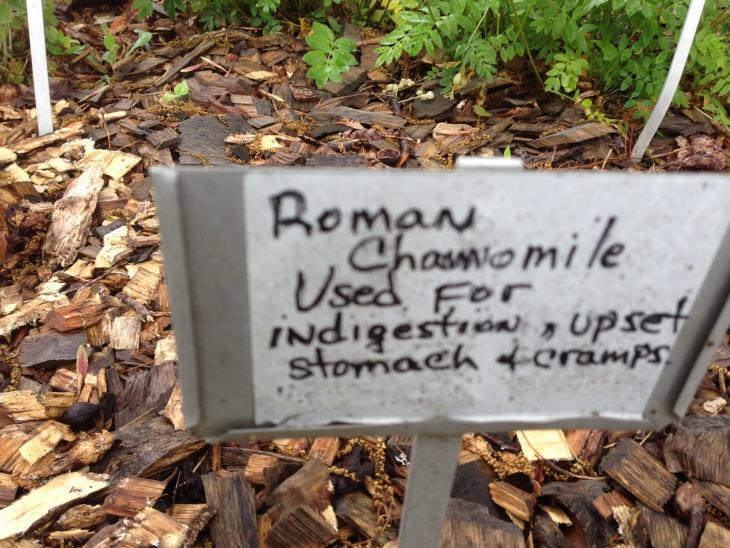 Roman
Chamomile
Used For
indigestion, upset
stomach & cramps.